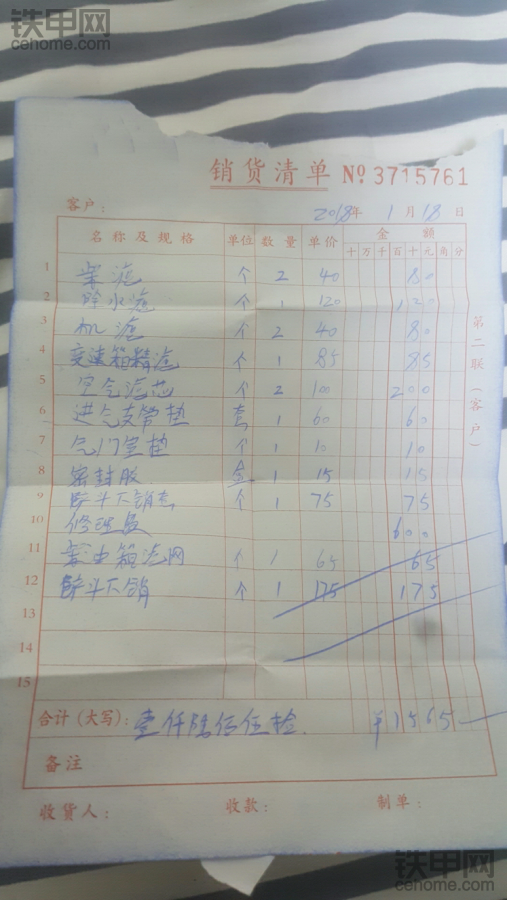 铁甲网
cehome.com
销货清单 № 3715761
客户： 2018年 1月18日
名称及规格 单位 数量 单价 金额
十 万 千 百 十 元 角 分
1 柴滤 个 2 40 80
2 除水滤 个 1 120 120
3 机滤 个 2 40 80
4 变速箱精滤 个 1 85 85
5 空气滤芯 个 2 100 200
6 进气支管垫 套 1 60 60
7 气门室垫 个 1 10 10
8 密封胶 盒 1 15 15
9 斗下销 个 1 75 75
10 修理 600
11 油箱 网 个 1 65 65
12 斗下销 个 1 175 175
13
14
15
第二联（客户）
合计（大写）： 壹仟 佰伍拾 ¥1565
备注
收货人： 收款： 制单：
铁甲网
cehome.com